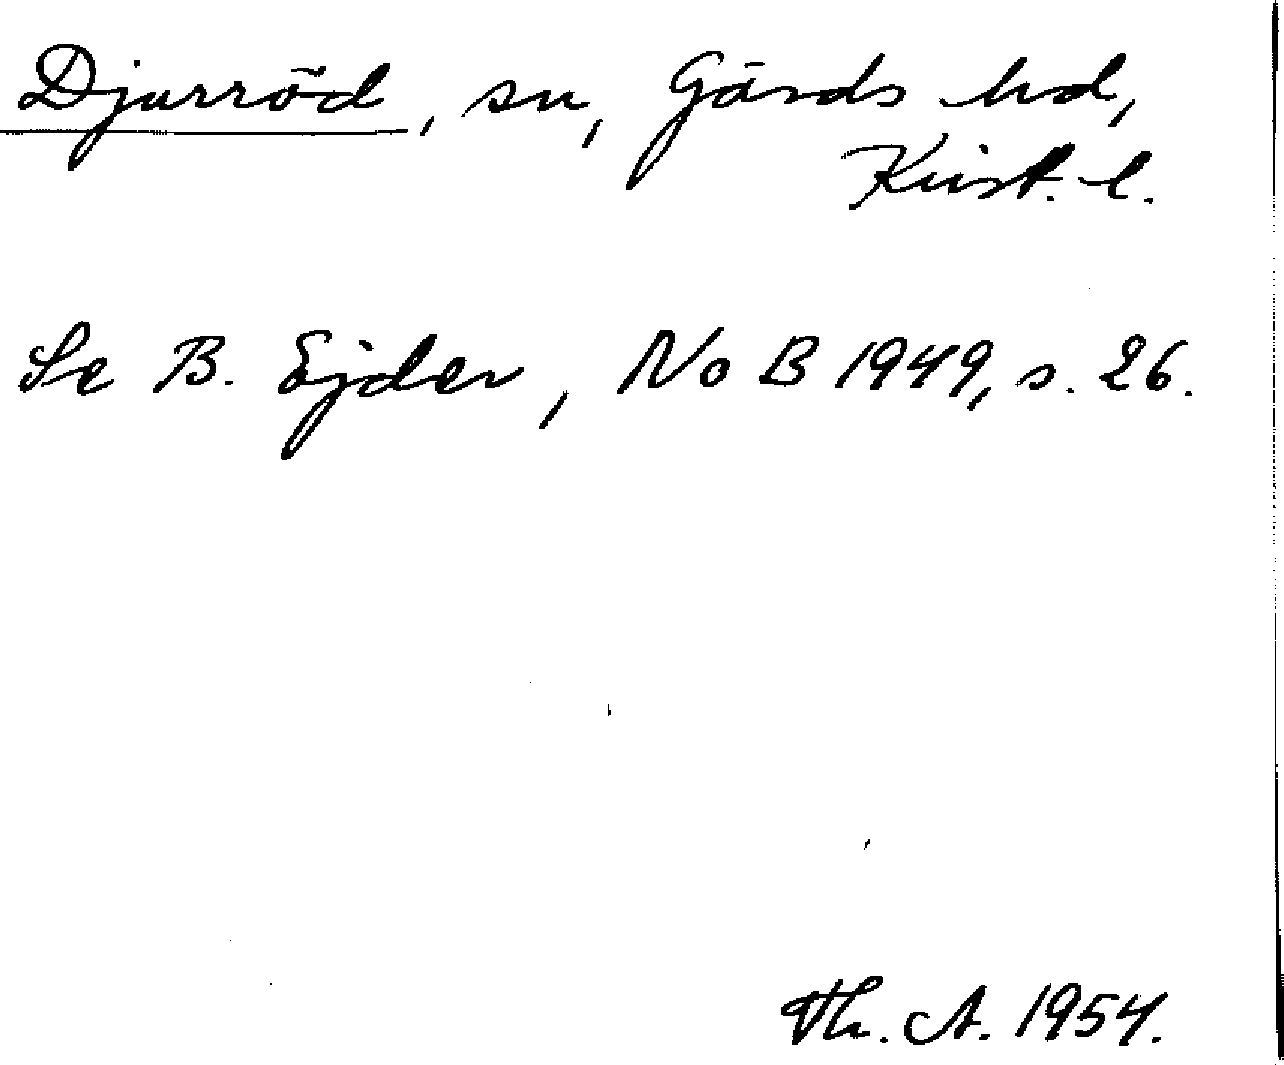 Djurröd, sn, Gärds hd,
Krist. l.
Se B. Ejder, NoB 1949, s. 26.
Th. A. 1954.